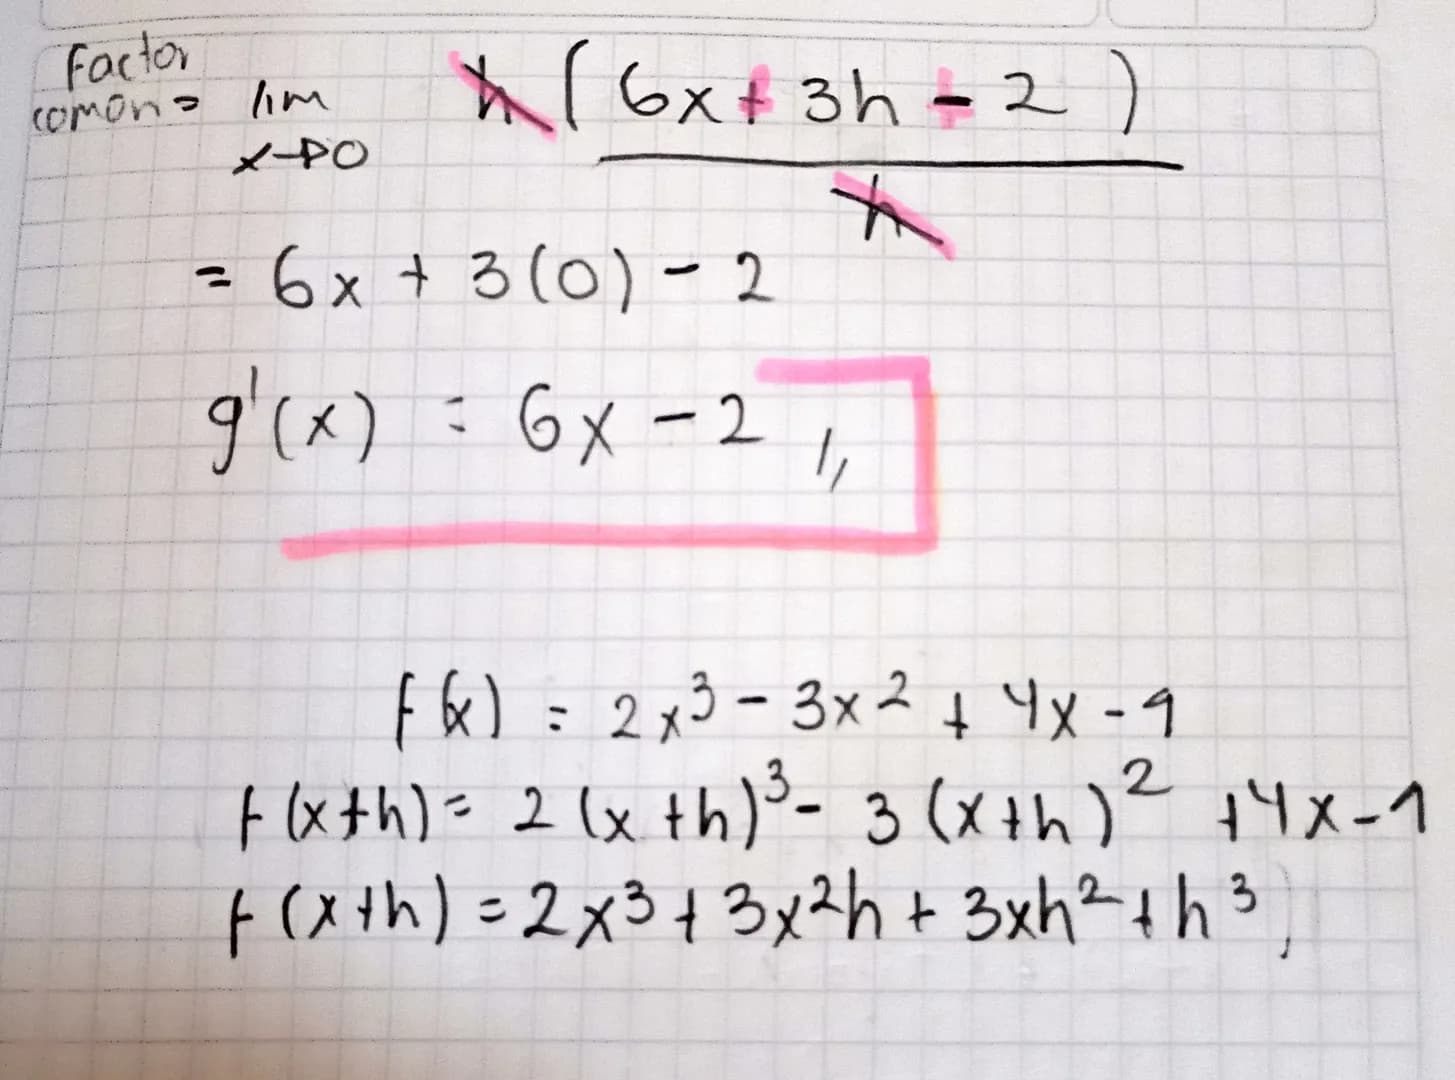 Factor
comon = lim h ( 6x + 3h - 2 )
x→0 h
= 6x + 3(0) - 2
g'(x) = 6x - 2 //
f(x) = 2x³ - 3x² + 4x - 9
f(x+h) = 2(x+h)³ - 3(x+h)² + 4x - 1
f(x+h) = 2x³ + 3x²h + 3xh² + h³)